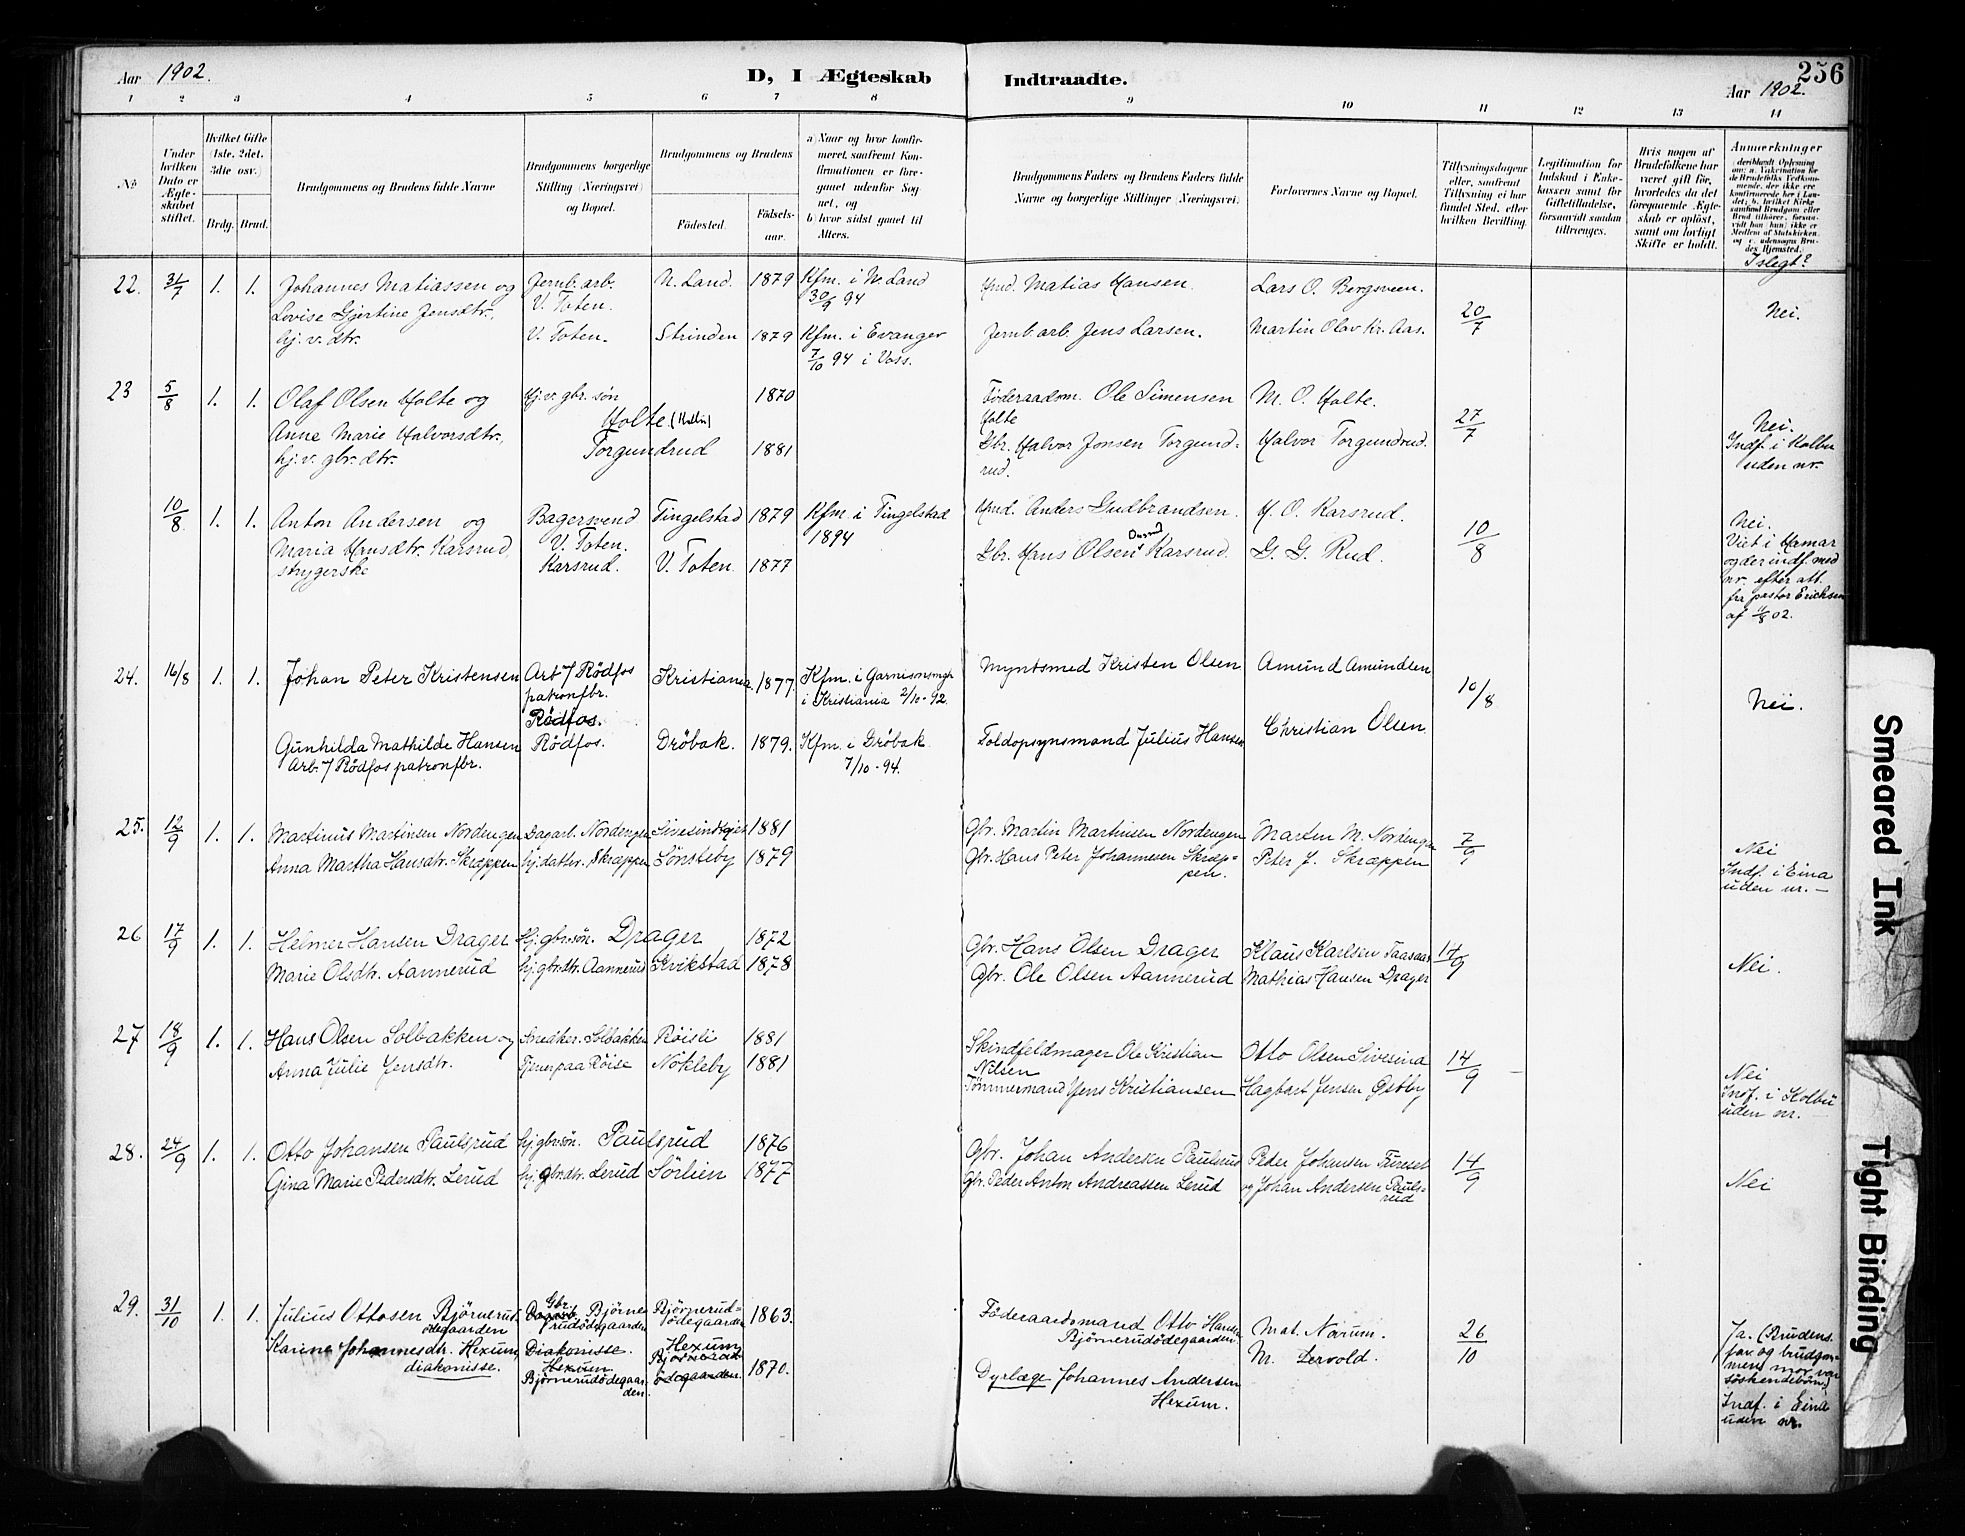 Aar 1902.
D, I Ægteskab Indtraadte.
256
Aar 1902.
1 2 3 4 5 6 7 8 9 10 11 12 13 14
No.
Under hvilken Dato er Ægteskabet stiftet.
Hvilket Gifte (1ste, 2det, 3die osv.)
Brdg. Brud.
Brudgommens og Brudens fulde Navne
Brudgommens borgerlige Stilling (Næringsvei) og Bopæl.
Brudgommens og Brudens
Födested.
Födselsaar.
a) Naar og hvor konfirmeret, saafremt Konfirmationen er foregaaet udenfor Sognet, og
b) hvor sidst gaaet til Alters.
Brudgommens Faders og Brudens Faders fulde Navne og borgerlige Stillinger (Næringsvei).
Forlovernes Navne og Bopæl.
Tillysningsdagene eller, saafremt Tillysning ei har fundet Sted, efter hvilken Bevilling.
Legitimation for Indskud i Enkekassen samt for Giftetilladelse, forsaavidt saadan tiltrænges.
Hvis nogen af Brudefolkene har været gift før, hvorledes da det foregaaende Ægteskab er opløst, samt om lovligt Skifte er holdt.
Anmerkninger
I slegt?
22. 31/7 1. 1. Johannes Matiassen og Jernb. arb. N. Land. 1879 Kfm. i N. Land Hmd. Matias Hansen. Lars O. Bergsveen.
Lovise Gjertine Jensdtr., V. Toten. 30/9 94 20/7 Nei.
hj. v. dtr. V. Toten. Strinden 1879 Kfm. i Evanger Jernb. arb. Jens Larsen. Martin Olav Kr. Aas.
7/10 94 i Voss.
23 5/8 1. 1. Olaf Olsen Holte og Hj. v. gbr. søn 1870 Föderaadsm. Ole Simensen M. O. Holte.
Holte. Holte 27/7 Nei.
Anne Marie Halvorsdtr., Torgundrud 1881 Gbr. Halvor Jonsen Torgundrud. Halvor Torgundrud. Indf. i Kolbu
hj. v. gbr. dtr. uden nr.
10/8 1. 1. Anton Andersen og Bagersvend Tingelstad 1879 Kfm. i Tingelstad Hmd. Anders Gudbrandsen. H. O. Karsrud. Nei.
Maria Hansdtr. Karsrud, V. Toten. 1894 10/8 Viet i Hamar
strygerske Karsrud. V. Toten 1877 Gbr. Hans Olsen Karsrud. G. G. Rud. og der indf. med
nr. efter att.
fra pastor Erichsen
af 11/8 02.
24. 16/8 1. 1. Johan Peter Kristensen Arb. v/ Rödfos Kristiania 1877. Kfm. i Garnisonsmgh. Myntsmed Kristen Olsen Amund Amundsen
patronfbr. i Kristiania 2/10-92. 10/8 Nei.
Rödfos.
Gunhilda Mathilde Hansen Rödfos. Dröbak. 1879. Kfm. i Dröbak Toldopsynsmand Julius Hansen Christian Olsen
Arb. v/ Rödfos patronfbr. 7/10-94.
25. 12/9 1. 1. Martinus Martinsen Nordengen Dagarb. Nordengen 1881 Gbr. Martin Martinsen Nordengen Marten M. Nordengen 7/9 Nei
Anna Martha Hansdtr. Skræppen hj. datter. Skræppen Lönsteby 1879 Gbr. Hans Peter Johannesen Skræppen. Peter J. Skræppen Indf. i Eina
uden nr. —
26 17/9 1. 1. Helmer Hansen Drager Hj. gbr. sön. Drager 1872 Gbr. Hans Olsen Drager Klaus Karlsen Taasaas 14/9
Marie Olsdtr. Aannerud hj. gbr. dtr. Aannerud Kvikstad 1878 Gbr. Ole Olsen Aannerud Mathias Hansen Drager Nei.
27 18/9 1. 1. Hans Olsen Solbakken og Snedker. Solbakken Röisli 1881 Skindfeldmager Ole Kristian Nilsen Otto Olsen Sivesind 14/9 Nei
Anna Julie Jensdtr. Tjener paa Röise Nökleby 1881 Tömmermand Jens Kristiansen Hagbart Jensen Østby Indf. i Kolbu
uden nr.
28. 24/9 1. 1. Otto Johansen Paulsrud hj. gbr. sön. Paulsrud 1876 Gbr. Johan Andersen Paulsrud Peder Johansen 14/9
Gina Marie Pedersdtr. Lerud hj. gbr. dtr. Lerud Sörlien 1877 Gbr. Peder Anton Andreassen Lerud og Johan Andersen Paulsrud Nei
29. 31/10 1. 1. Julius Ottosen Björnerudödegaarden Gbr. Björnerudödegaarden Björnerudödegaarden 1863. Föderaadsmand Otto Hansen Björnerudödegaarden Mat. Narum. 26/10
Karine Johannesdtr. Hexum, diakonisse. Diakonisse. Hexum Björnerudödegaarden. Hexum Björnerudödegaarden 1870. Dyrlæge Johannes Andersen Hexum. M. Lervold.
Ja. (Brudens
far og brudgommens mor var
söskendebörn)
Indf. i Eina
uden nr.
Smeared Ink
Tight Binding